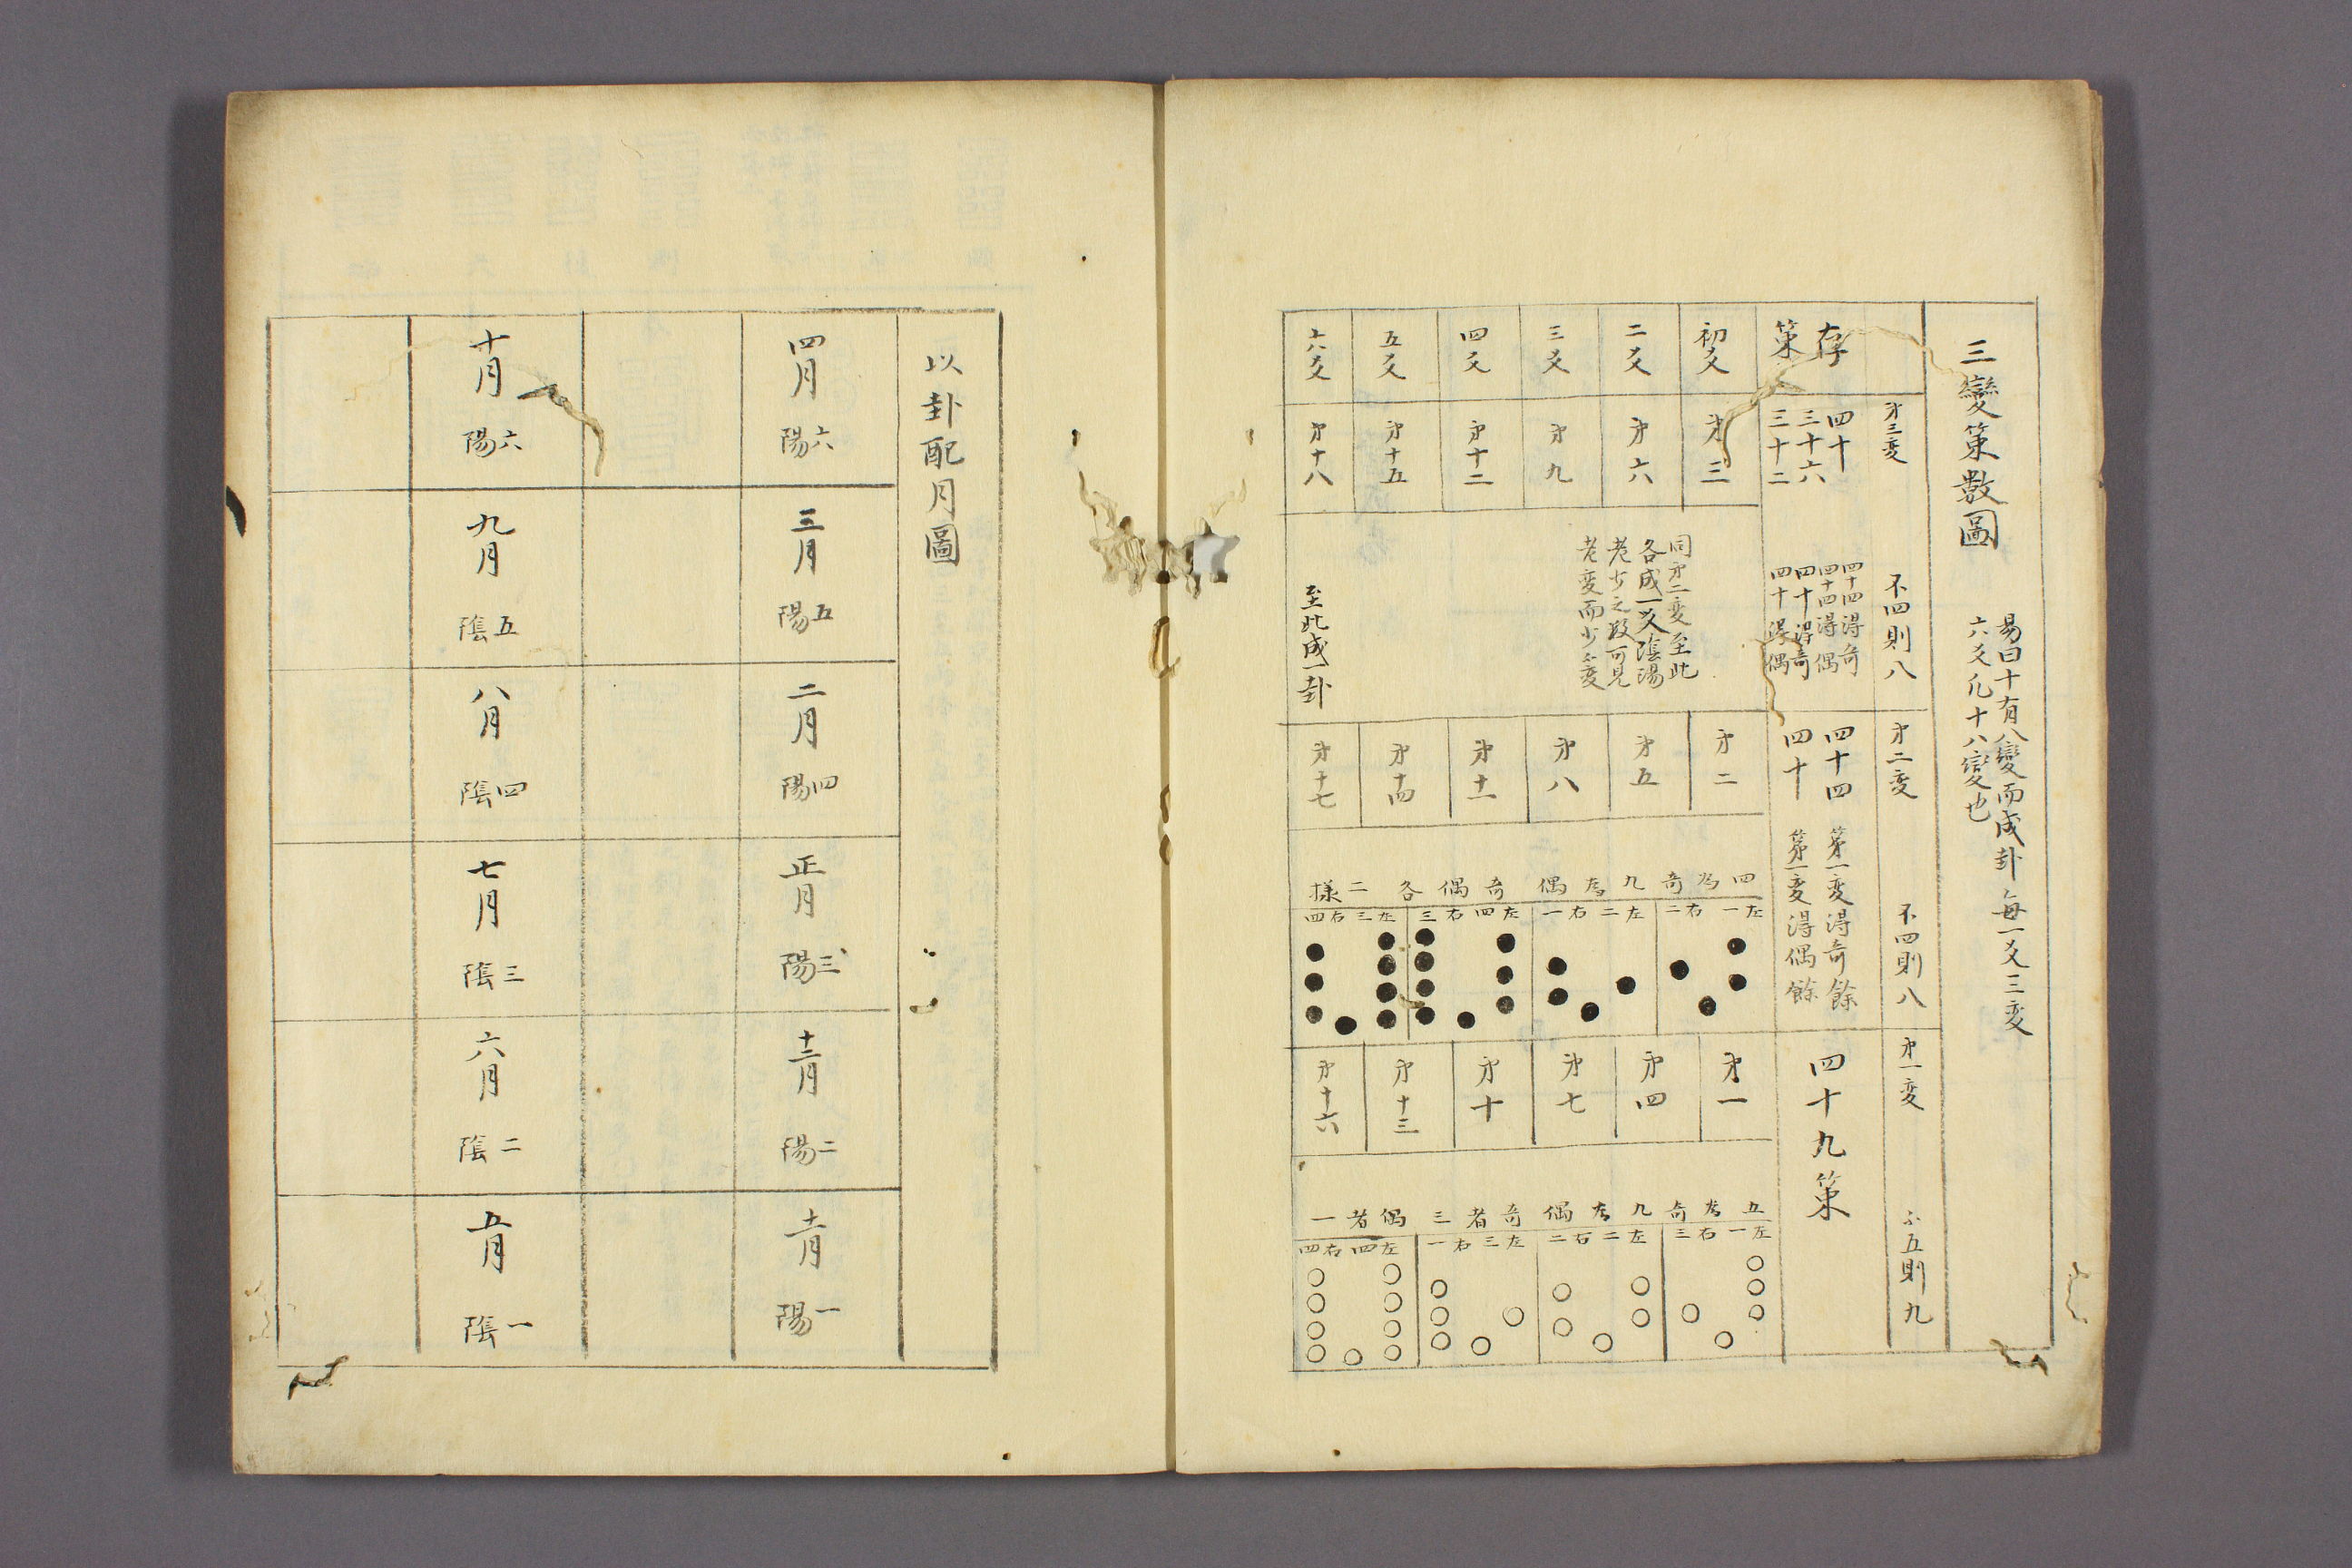 三變策數圖
易曰十有八變而成卦每一爻三変
六爻凡十八變也
才三変
不四則八
才二変
不四則八
才一変
不五則九
存
策
四十
三十六
三十二
四十四得奇
四十四得偶
四十得奇
四十得偶
四十四
第一変得奇餘
四十
第一変得偶餘
四十九策
初爻
二爻
三爻
四爻
五爻
上六爻
才三
才六
才九
才十二
才十五
才十八
同才二変至此
各成一爻陰陽
老少之
可見
老変而少不変
至此成一卦
才二
才五
才八
才十一
才十四
才十七
四為奇九為偶奇偶各二樣
左一右二
左二右一
左四右三
左三右四
才一
才四
才七
才十
才十三
才十六
五為奇九為偶奇者三偶者一
左一右三
左二右二
左三右一
左四右四
以卦配月圖
四月
六陽
三月
五陽
二月
四陽
正月
三陽
十二月
二陽
十一月
一陽
十月
六陽
九月
五陰
八月
四陰
七月
三陰
六月
二陰
五月
一陰